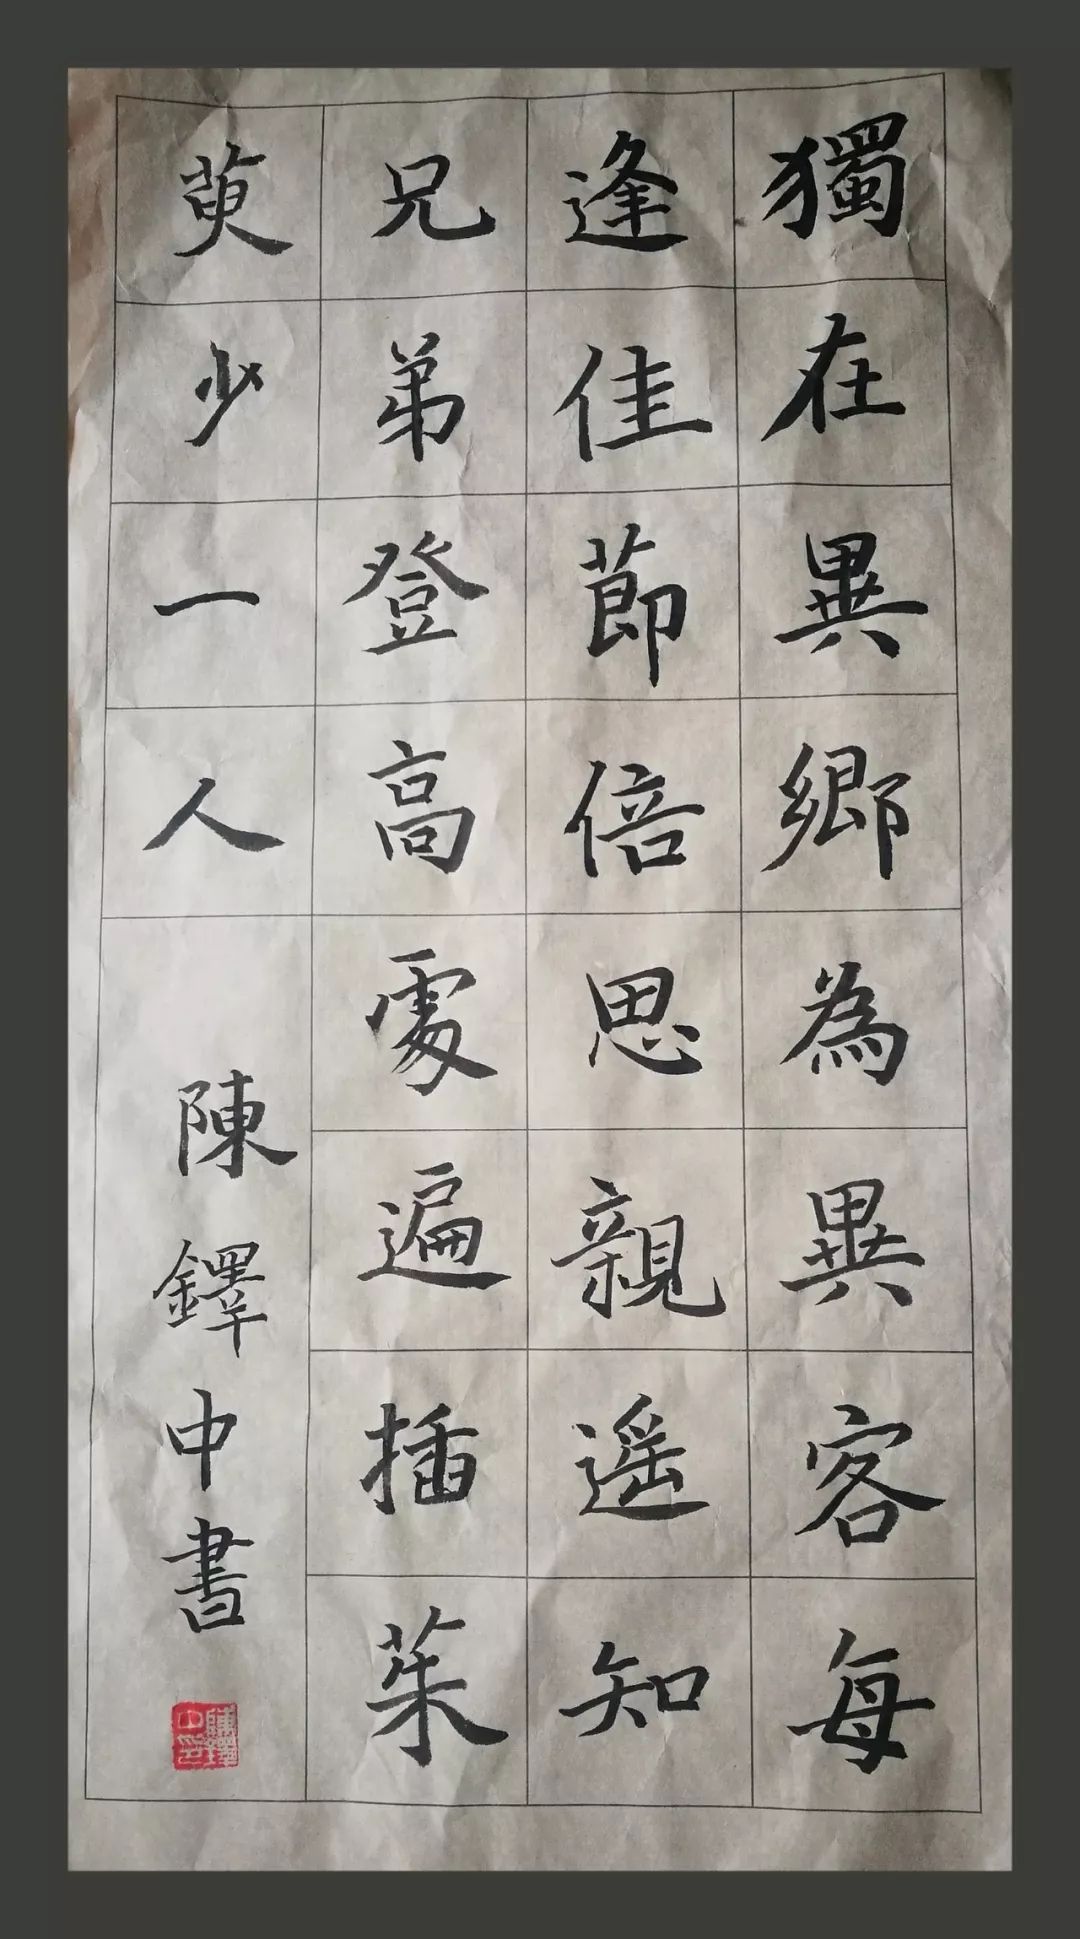 獨在異鄉為異客每
逢佳節倍思親遥知
兄弟登高處遍插茱
萸少一人
陳鐸中書